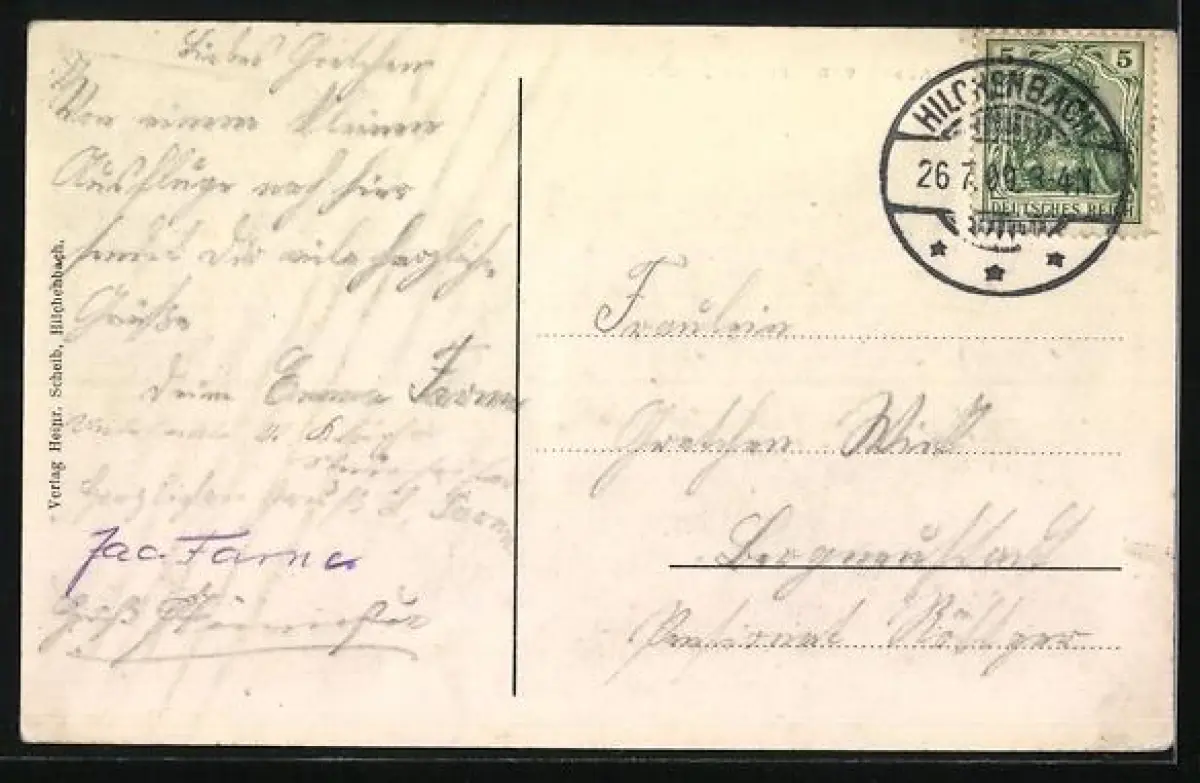 Liebes Gretchen
Von einem kleinen
Ausfluge nach hier
sendet Dir viele herzliche
Grüße
Deine Emmie
herzlichen Gruß
Jac. Farne
Gruß
Verlag Heinr. Scheib, Hilchenbach.
5 5
DEUTSCHES REICH
HILCHENBACH
26 7.09. 3-4N.
Fräulein
Gretchen
Bergneustadt
Pensionat Röttger